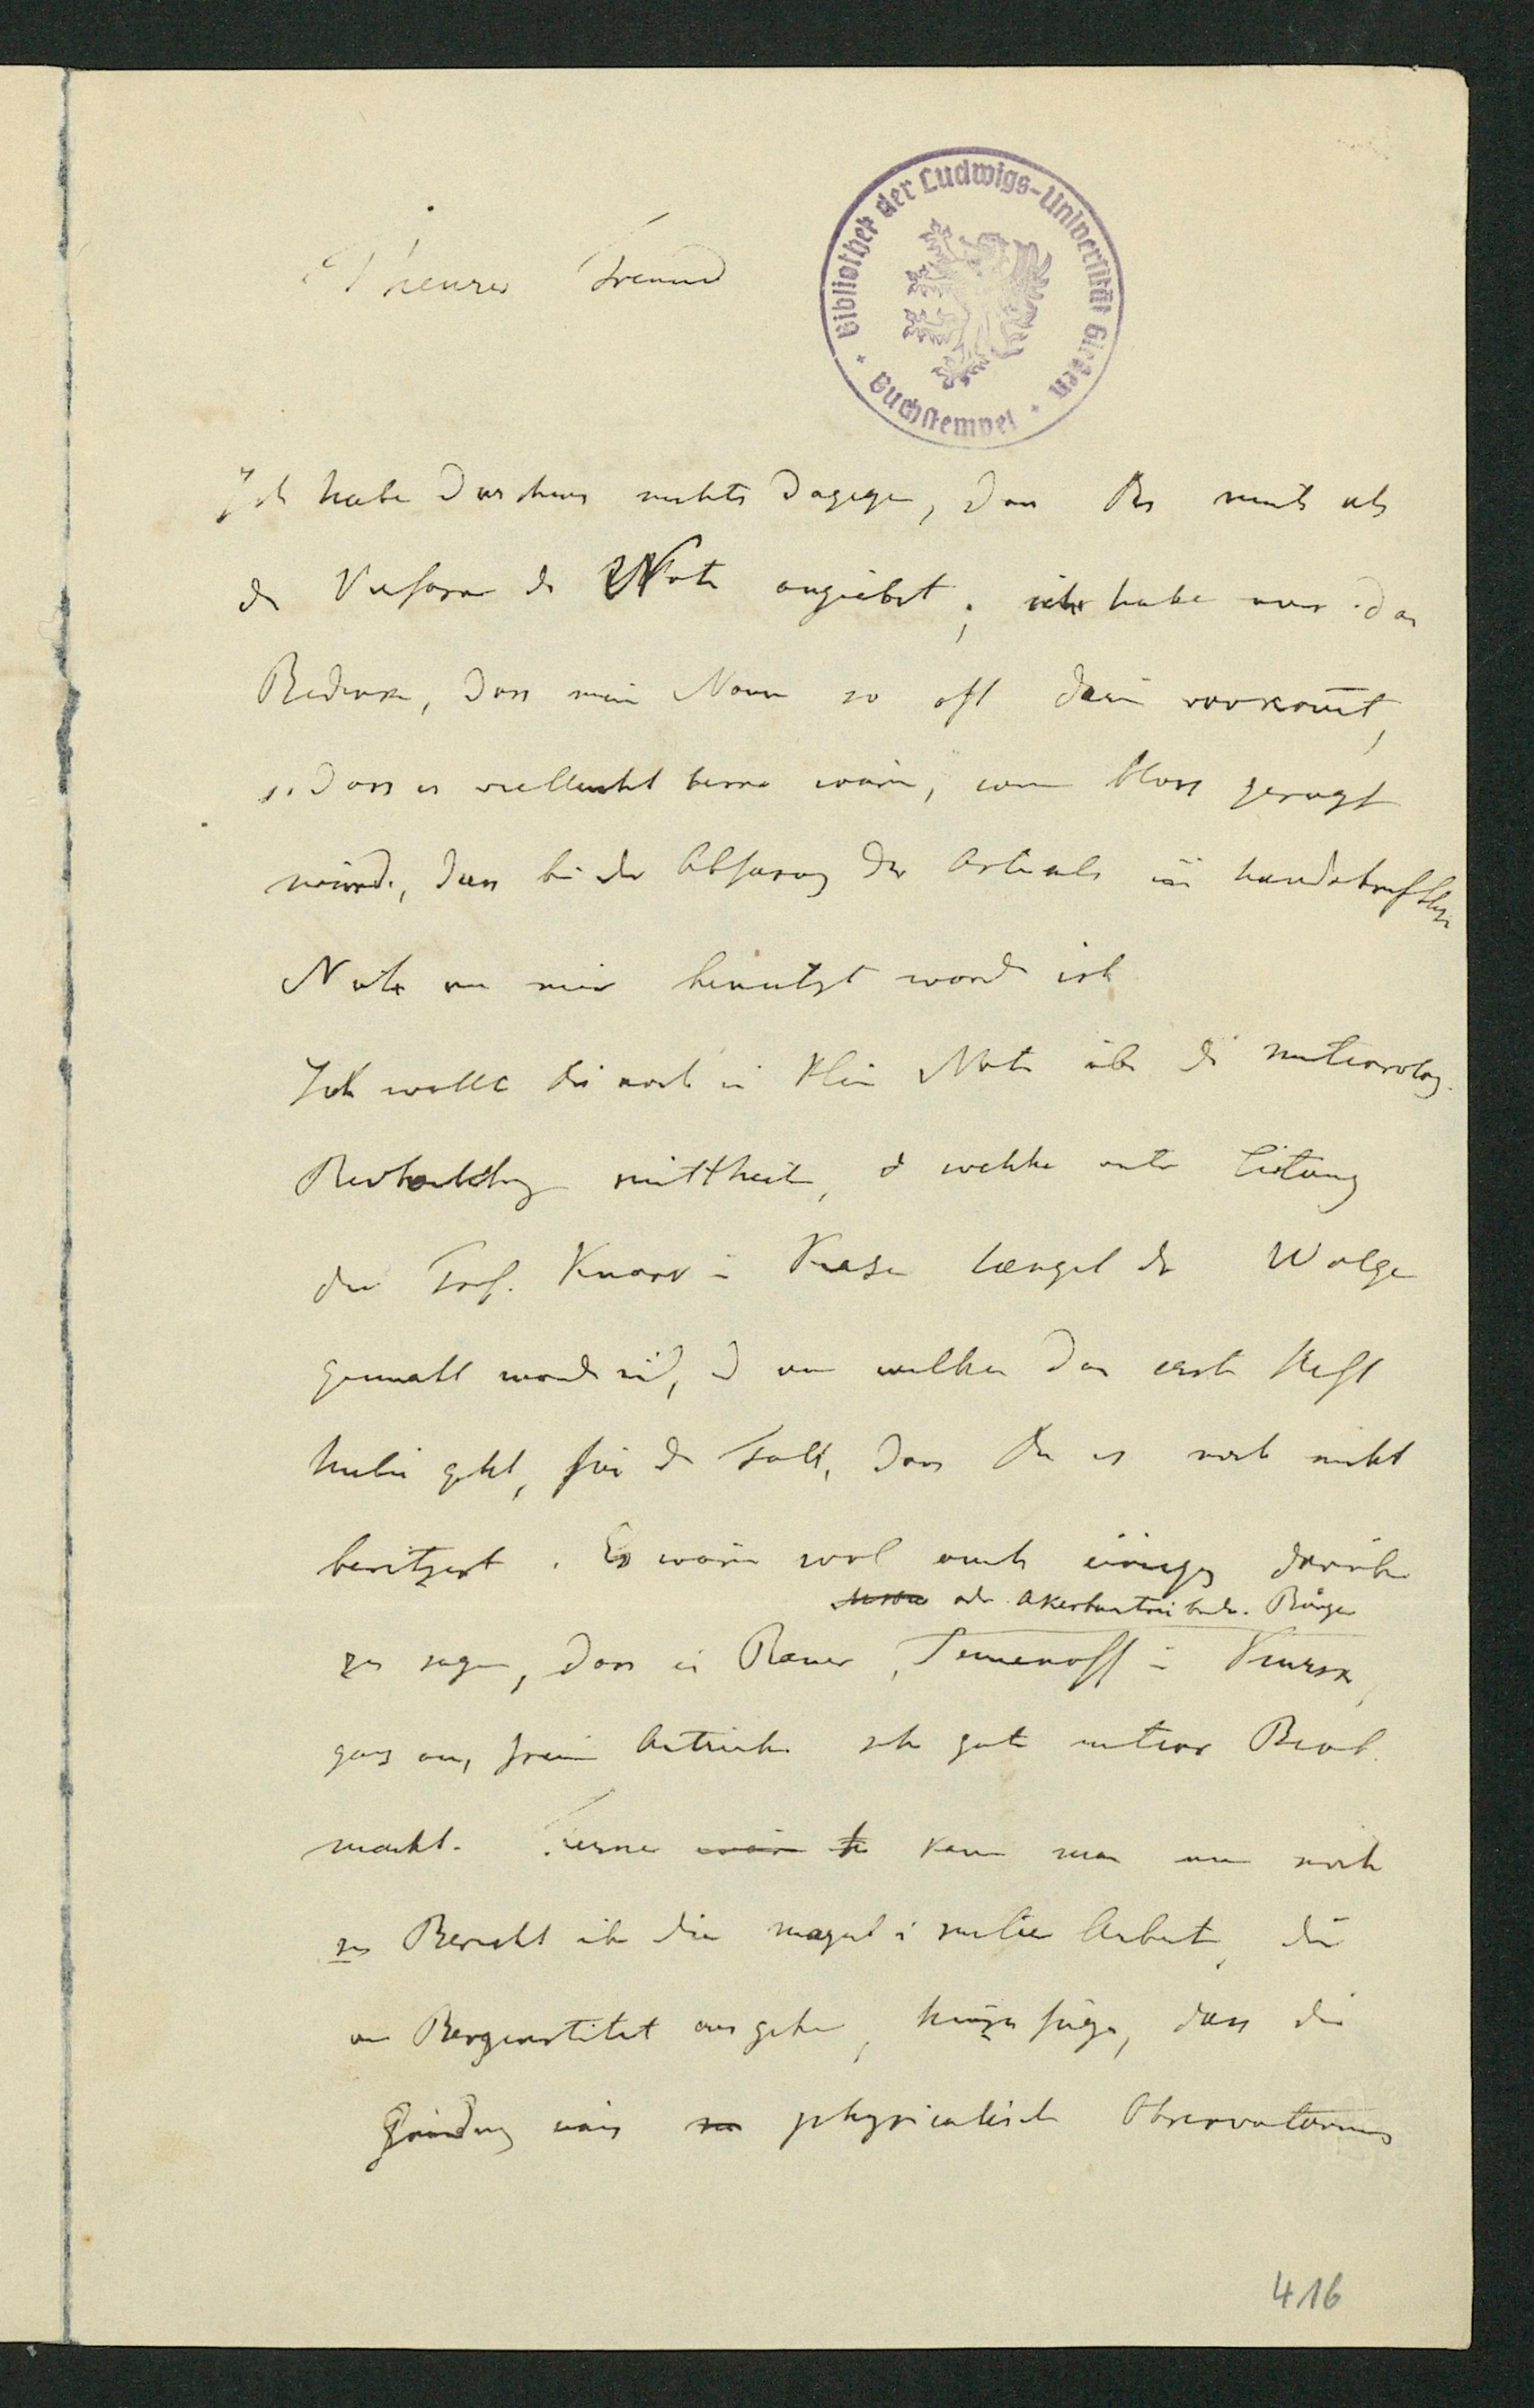 Theurer Freund
Bibliothek der Ludwigs-Universität Gießen
Buchstempel
Ich habe durchaus nichts dagegen, dass Du mich als
den Verfasser der Note angiebst; ich habe nur das
Bedenken, dass mein Name so oft darin vorkom̄t,
so dass es vielleicht besser wäre, wenn bloss gesagt
würde, dass bei der Abfassung des Artikels eine handschriftliche
Note von mir benutzt worden ist
Ich wollte Dir noch eine kleine Note über die meteorolog.
Beobachtung mittheilen, welche unter Leitung
des Prof. Knorr in Kasan laengst der Wolga
gemacht worden sind, und von welchen das erste Heft
hiebei geht, für den Fall, dass Du es noch nicht
besitzest. Es wäre wol auch einiges darüber
oder Akerbautreibender Bürger
zu sagen, dass ein Bauer, Semenoff in Kursk,
ganz aus freiem Antriebe sehr gute meteor Beob.
macht. Ferner kann man nun noch
zu Bericht über die magnet. meteor Arbeiten, die
vom Berginstitut ausgehen, hinzufügen, dass die
Gründung eines physicalischen Observatoriums
416